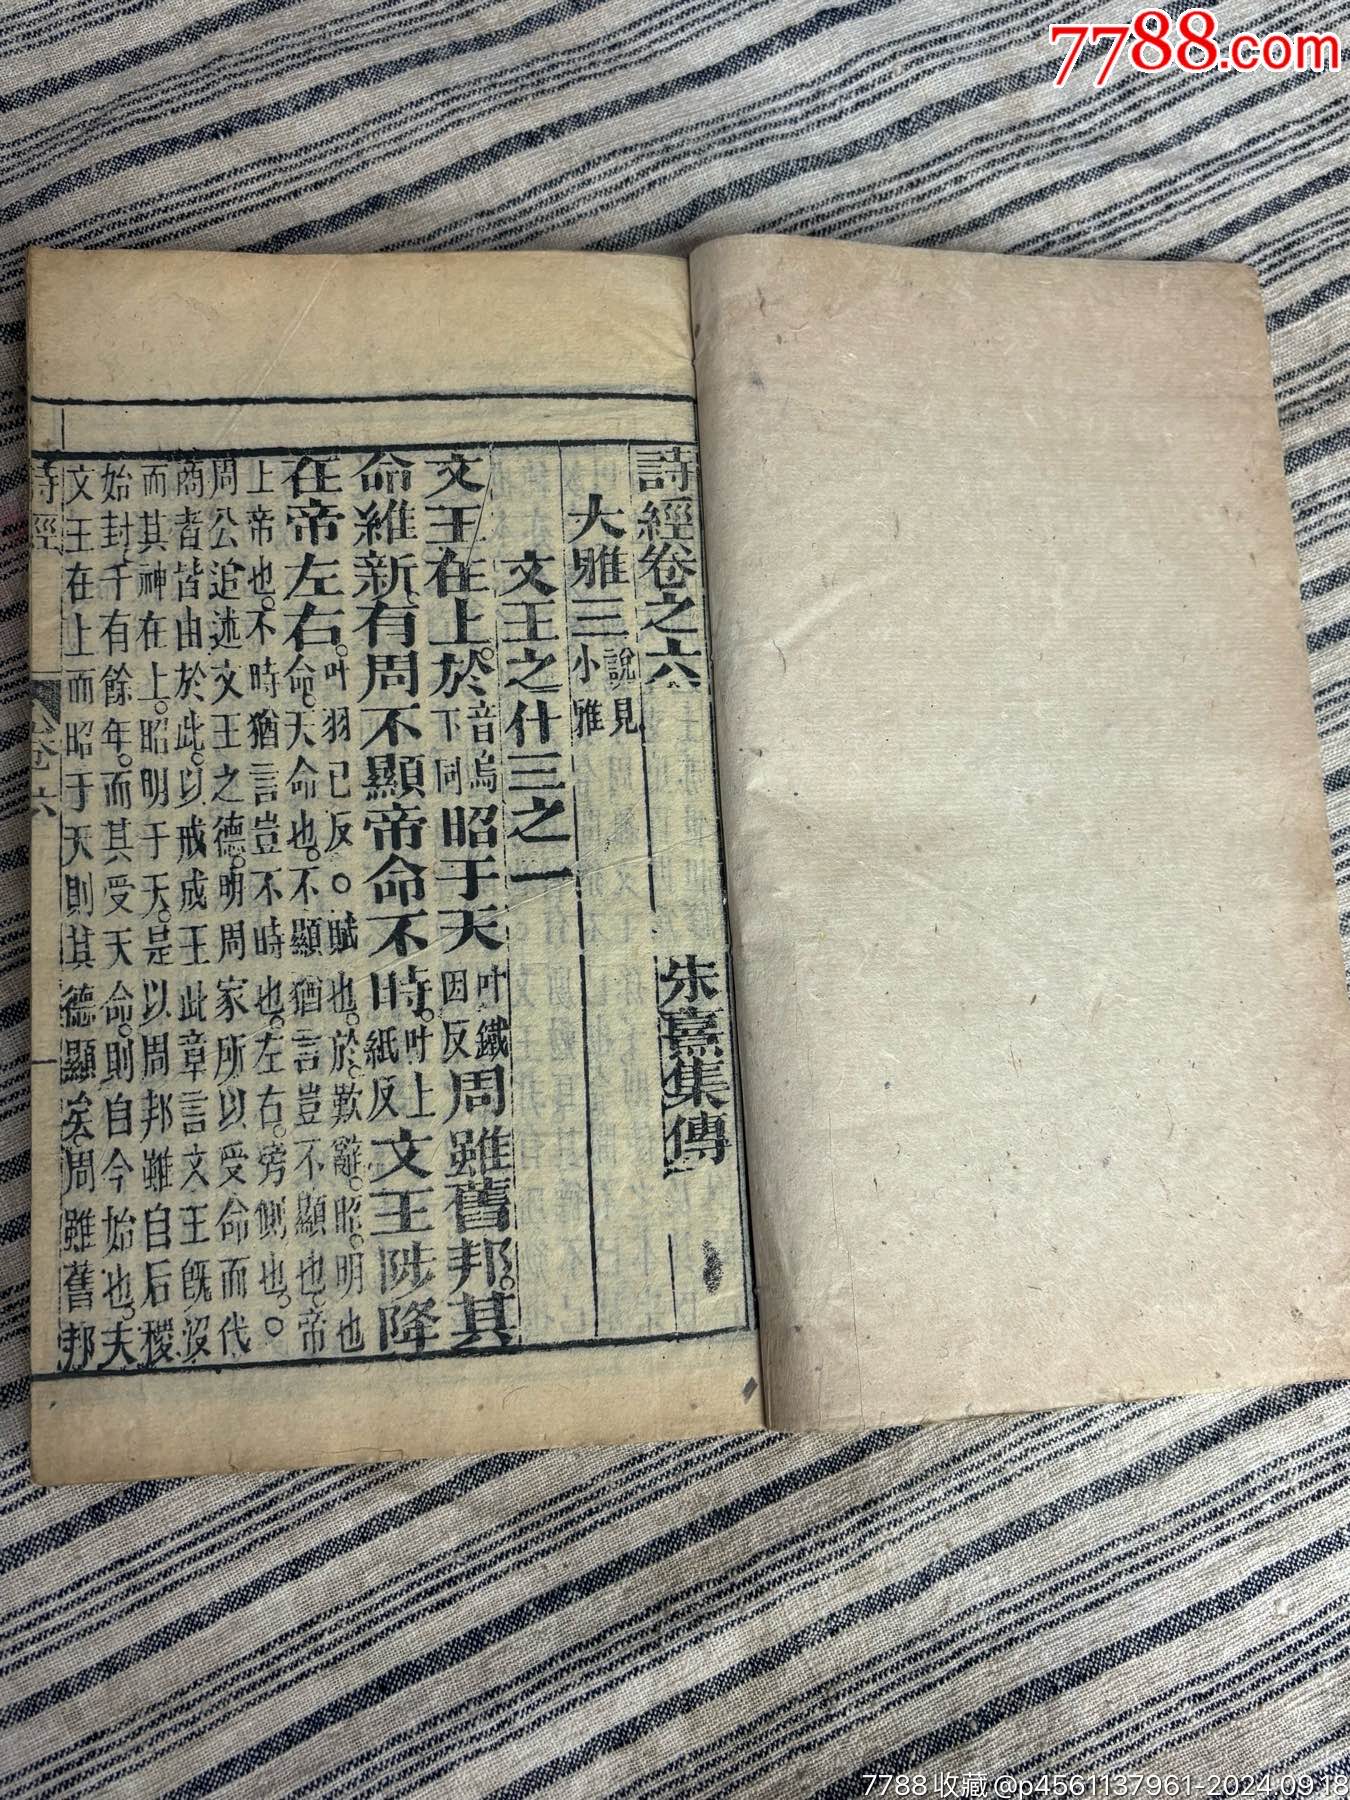 7788.com
詩經卷之六 朱熹集傳
大雅三 說見小雅
文王之什三之一
文王在上。於音嗚下同昭于天叶鐵因反周雖舊邦。其
命維新。有周不顯帝命不時。叶上紙反文王陟降
在帝左右。叶羽已反○賦也。於。歎辭。昭。明也
命。天命也。不顯猶言豈不顯也。帝
上帝也。不時猶言豈不時也。左右。旁側也。○
周公追述文王之德。明周家所以受命而代
商者皆由於此。以戒成王此章言文王旣沒
而其神在上。昭明于天。是以周邦雖自后稷
始封。千有餘年。而其受天命。則自今始也。夫
文王在上而昭于天則其德顯矣。周雖舊邦
詩經 卷六 一
7788收藏@p4561137961-2024.09.18